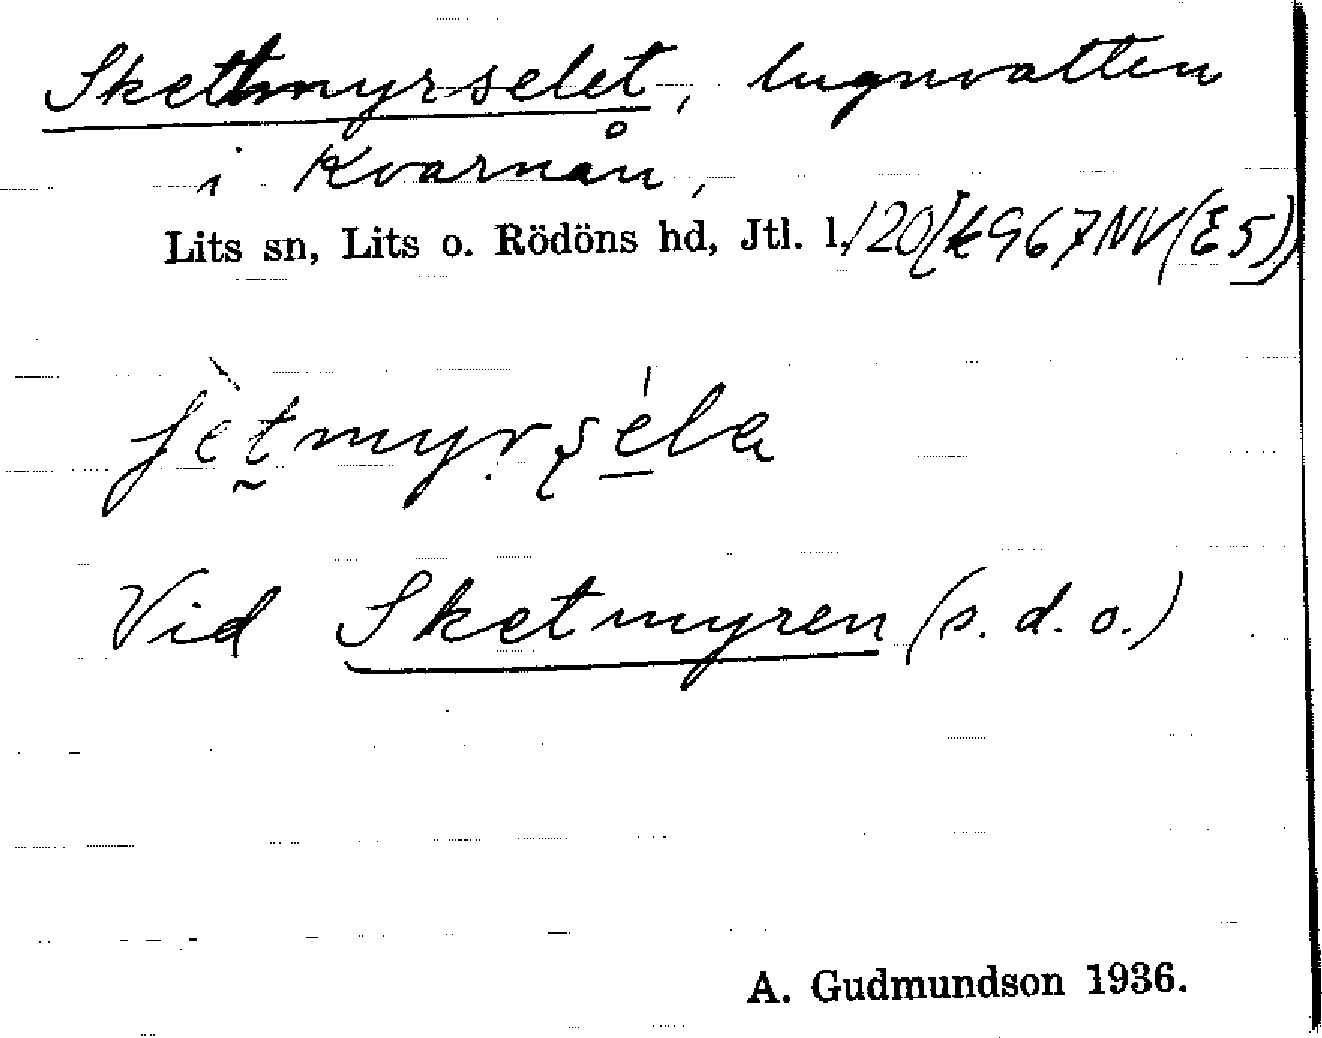 Sketmyrselet, lugnvatten
i Kvarnån,
Lits sn, Lits o. Rödöns hd, Jtl. l. /20/k967NV(E5))
ʃètmyrsela
Vid Sketmyren (s. d. o.)
A. Gudmundson 1936.